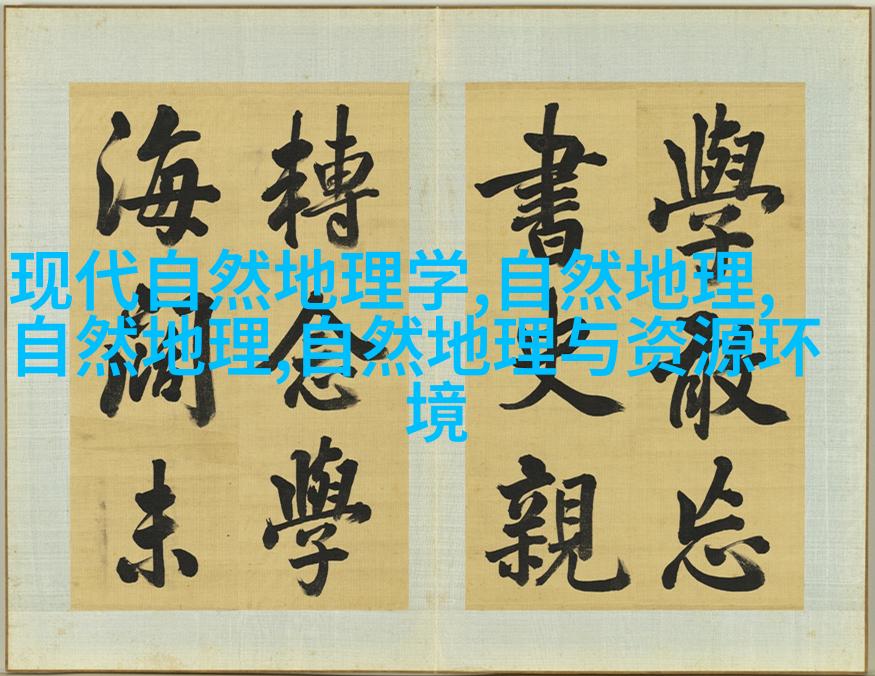 现代自然地理学,自然地理,
自然地理,自然地理与资源环
境
學敢忘
書史親
轉念學
海闊未